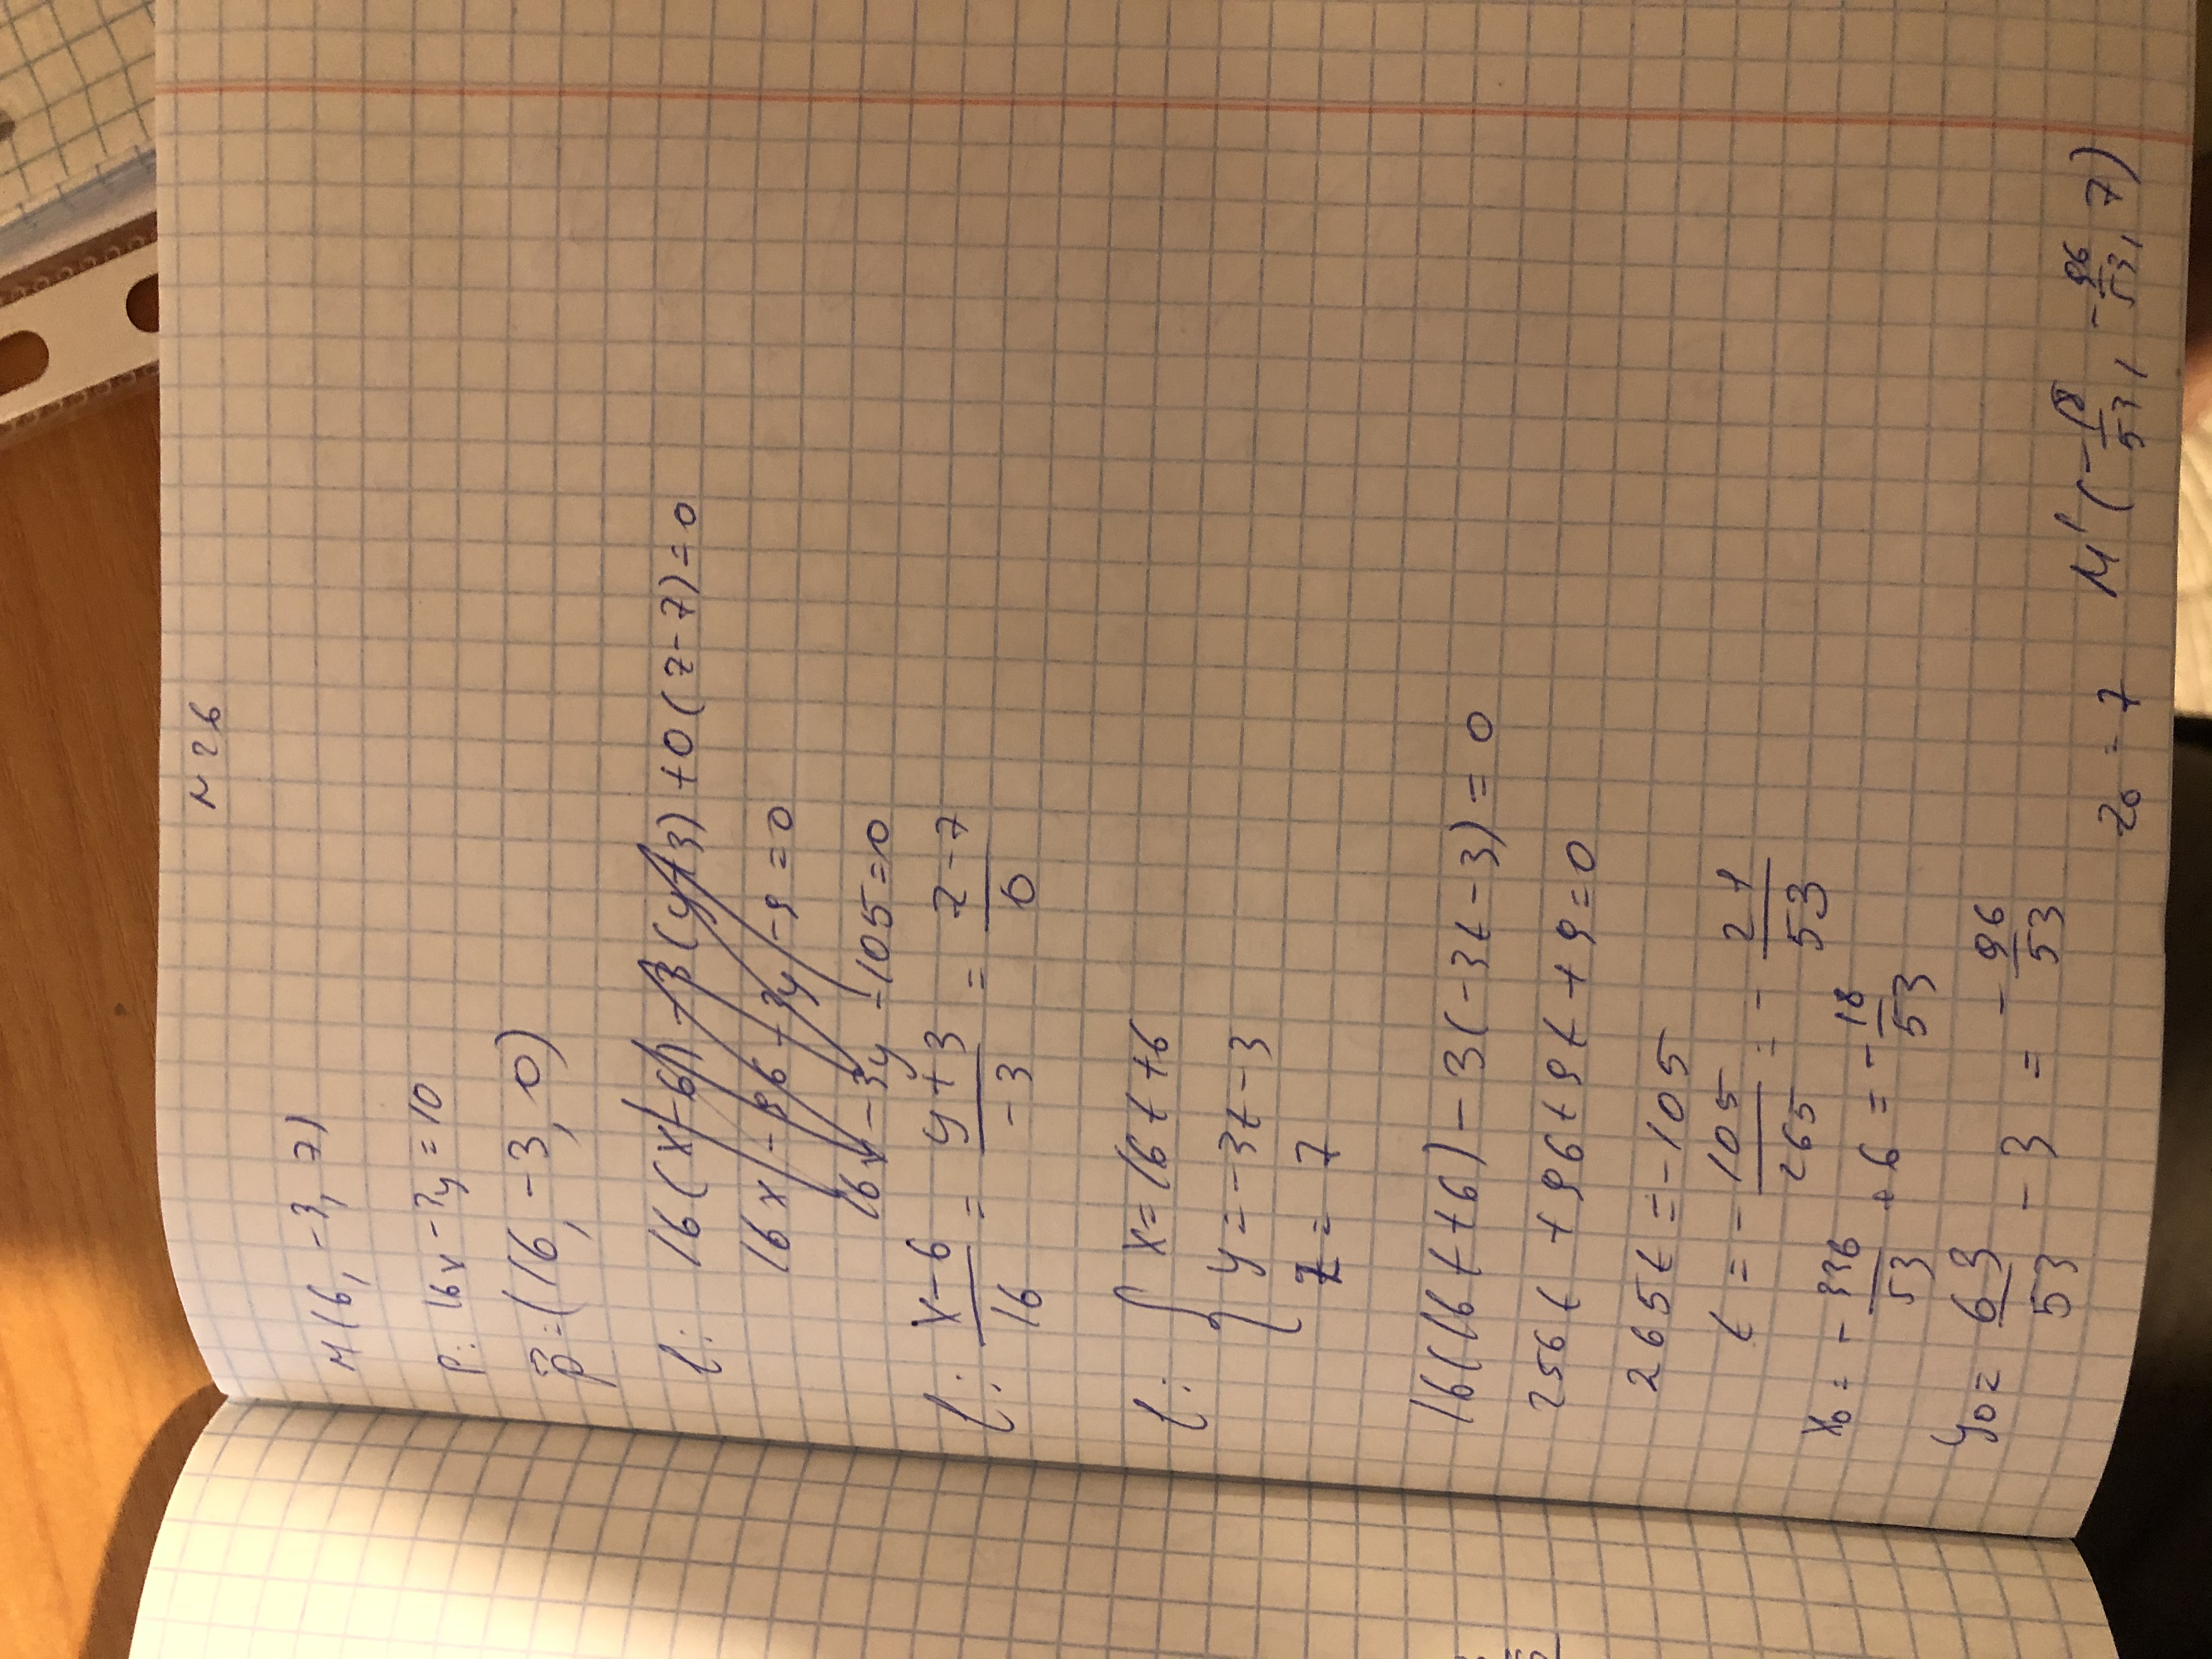 N 26
M(6, -3, 7)
P: 16x - 3y = 10
p̄ = (16, -3, 0)
l: 16(x-6) - 3(y+3) + 0(z-7) = 0
16x - 96 - 3y - 9 = 0
16x - 3y - 105 = 0
l: (x-6)/16 = (y+3)/-3 = (z-7)/0
l: { x = 16t + 6
y = -3t - 3
z = 7
16(16t+6) - 3(-3t-3) = 0
256t + 96 + 9t + 9 = 0
265t = -105
t = -105/265 = -21/53
x₀ = -336/53 + 6 = -18/53
y₀ = 63/53 - 3 = -96/53
z₀ = 7 M'(-18/53, -96/53, 7)